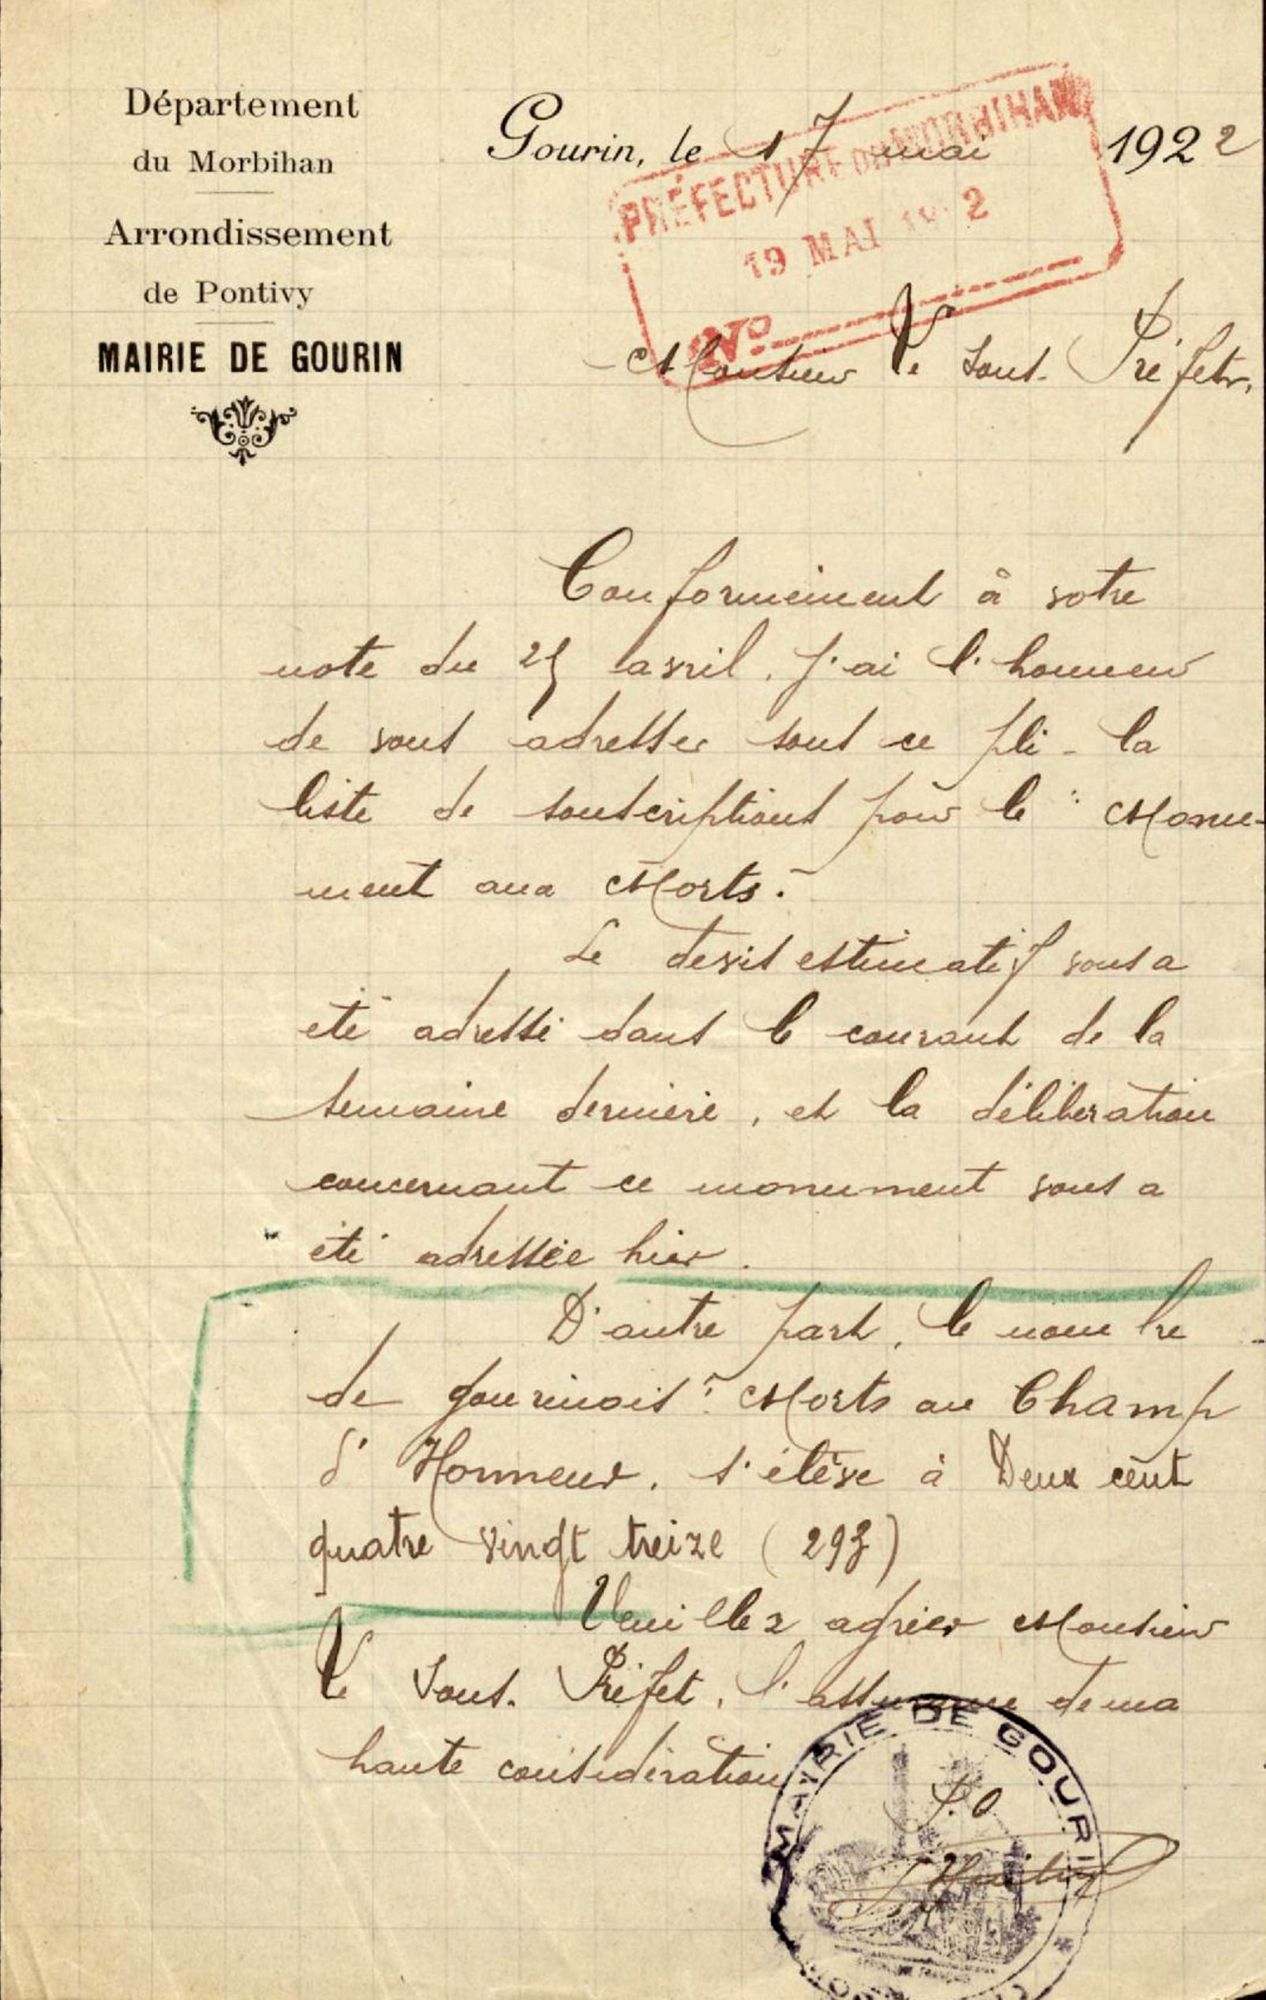 Département
du Morbihan
Arrondissement
de Pontivy
MAIRIE DE GOURIN
Gourin, le 17 mai 1922
PRÉFECTURE DU MORBIHAN
19 MAI 1922
No
Monsieur le Sous-Préfet,
Conformément à votre
note du 25 avril, j'ai l'honneur
de vous adresser sous ce pli - la
liste de souscriptions pour le "Monu-
ment aux Morts."
Le devis estimatif vous a
été adressé dans le courant de la
semaine dernière, et la délibération
concernant ce monument vous a
été adressée hier.
D'autre part, le nombre
de gourinois "Morts au Champ
d'Honneur, s'élève à Deux cent
quatre vingt treize (293)
Veuillez agréer Monsieur
le Sous-Préfet, l'assurance de ma
haute considération
P.O
MAIRIE DE GOURIN